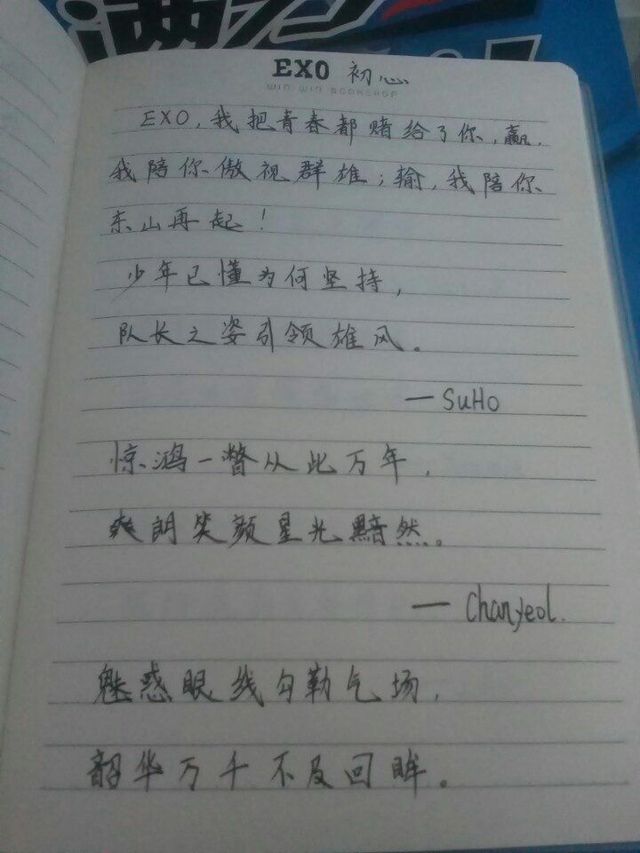 EXO 初心
WIN WIN BOOKSHOP
EXO,我把青春都赌给了你,赢,
我陪你傲视群雄;输,我陪你
东山再起!
少年已懂为何坚持,
队长之姿引领雄风。
—SuHo
惊鸿一瞥从此万年,
爽朗笑颜星光黯然。
—Chanyeol.
魅惑眼线勾勒气场,
韶华万千不及回眸。